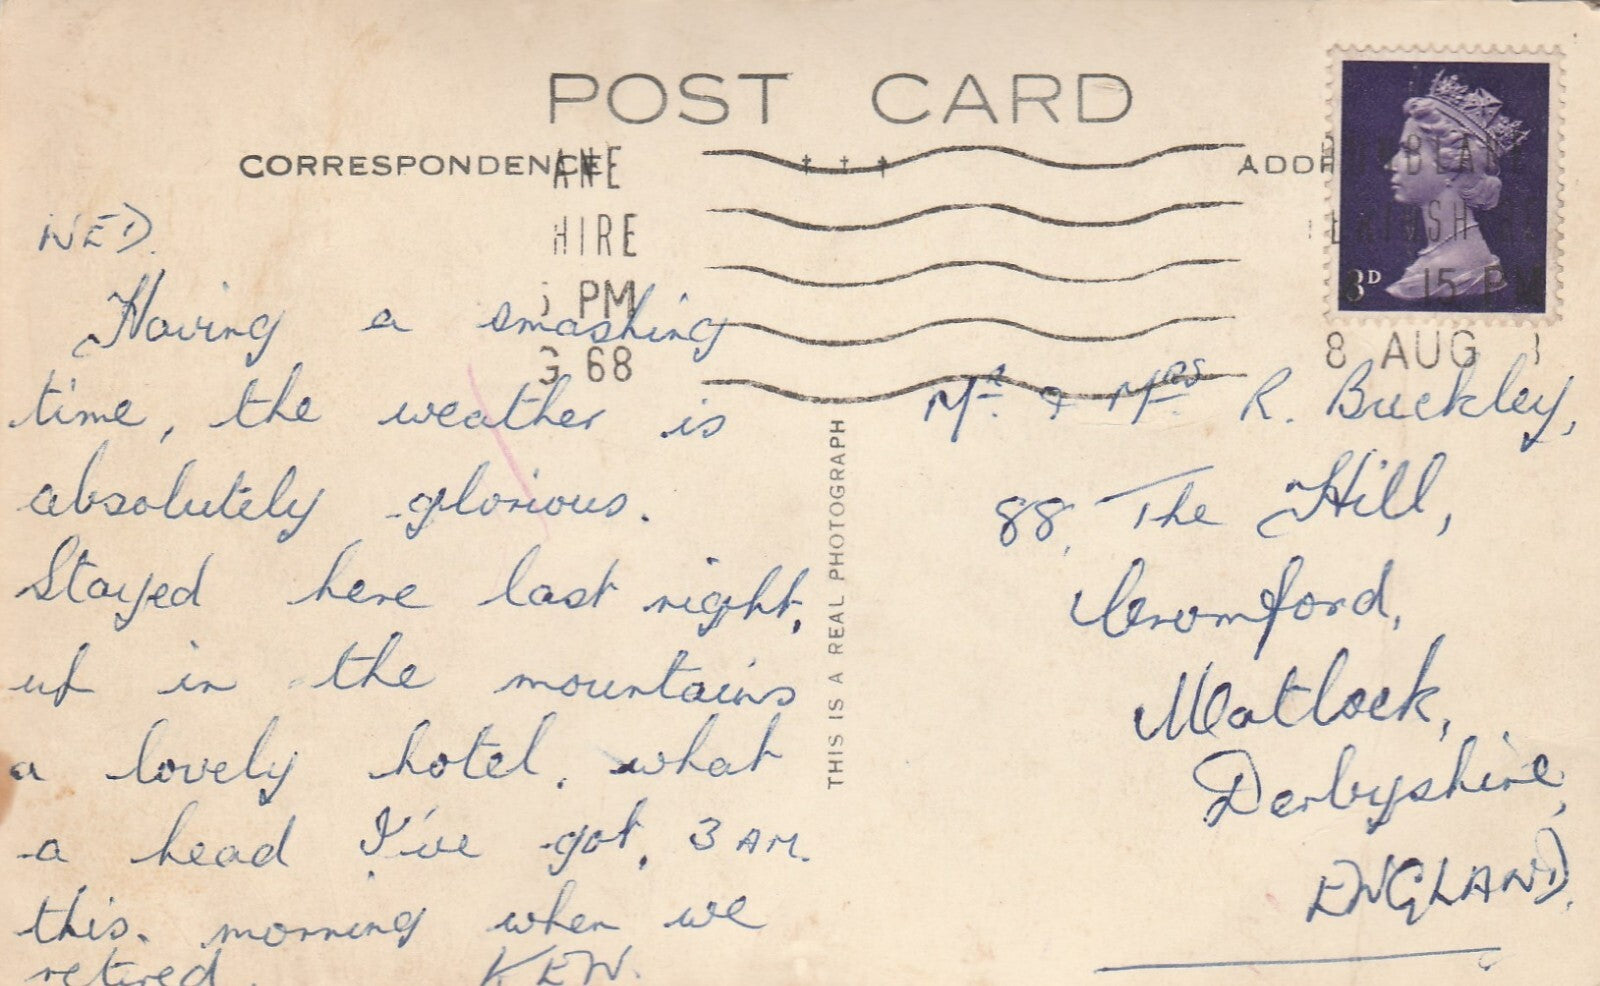 POST CARD
CORRESPONDENCE
ADD
ANE
HIRE
PM
68
3D
15 PM
8 AUG
WED.
Having a smashing
time, the weather is
absolutely glorious.
Stayed here last night,
up in the mountains
a lovely hotel. what
a head I've got, 3 AM.
this. morning when we
retired. KEN.
THIS IS A REAL PHOTOGRAPH
Mr. & Mrs R. Buckley,
88, The Hill,
Cromford,
Matlock,
Derbyshire,
ENGLAND.